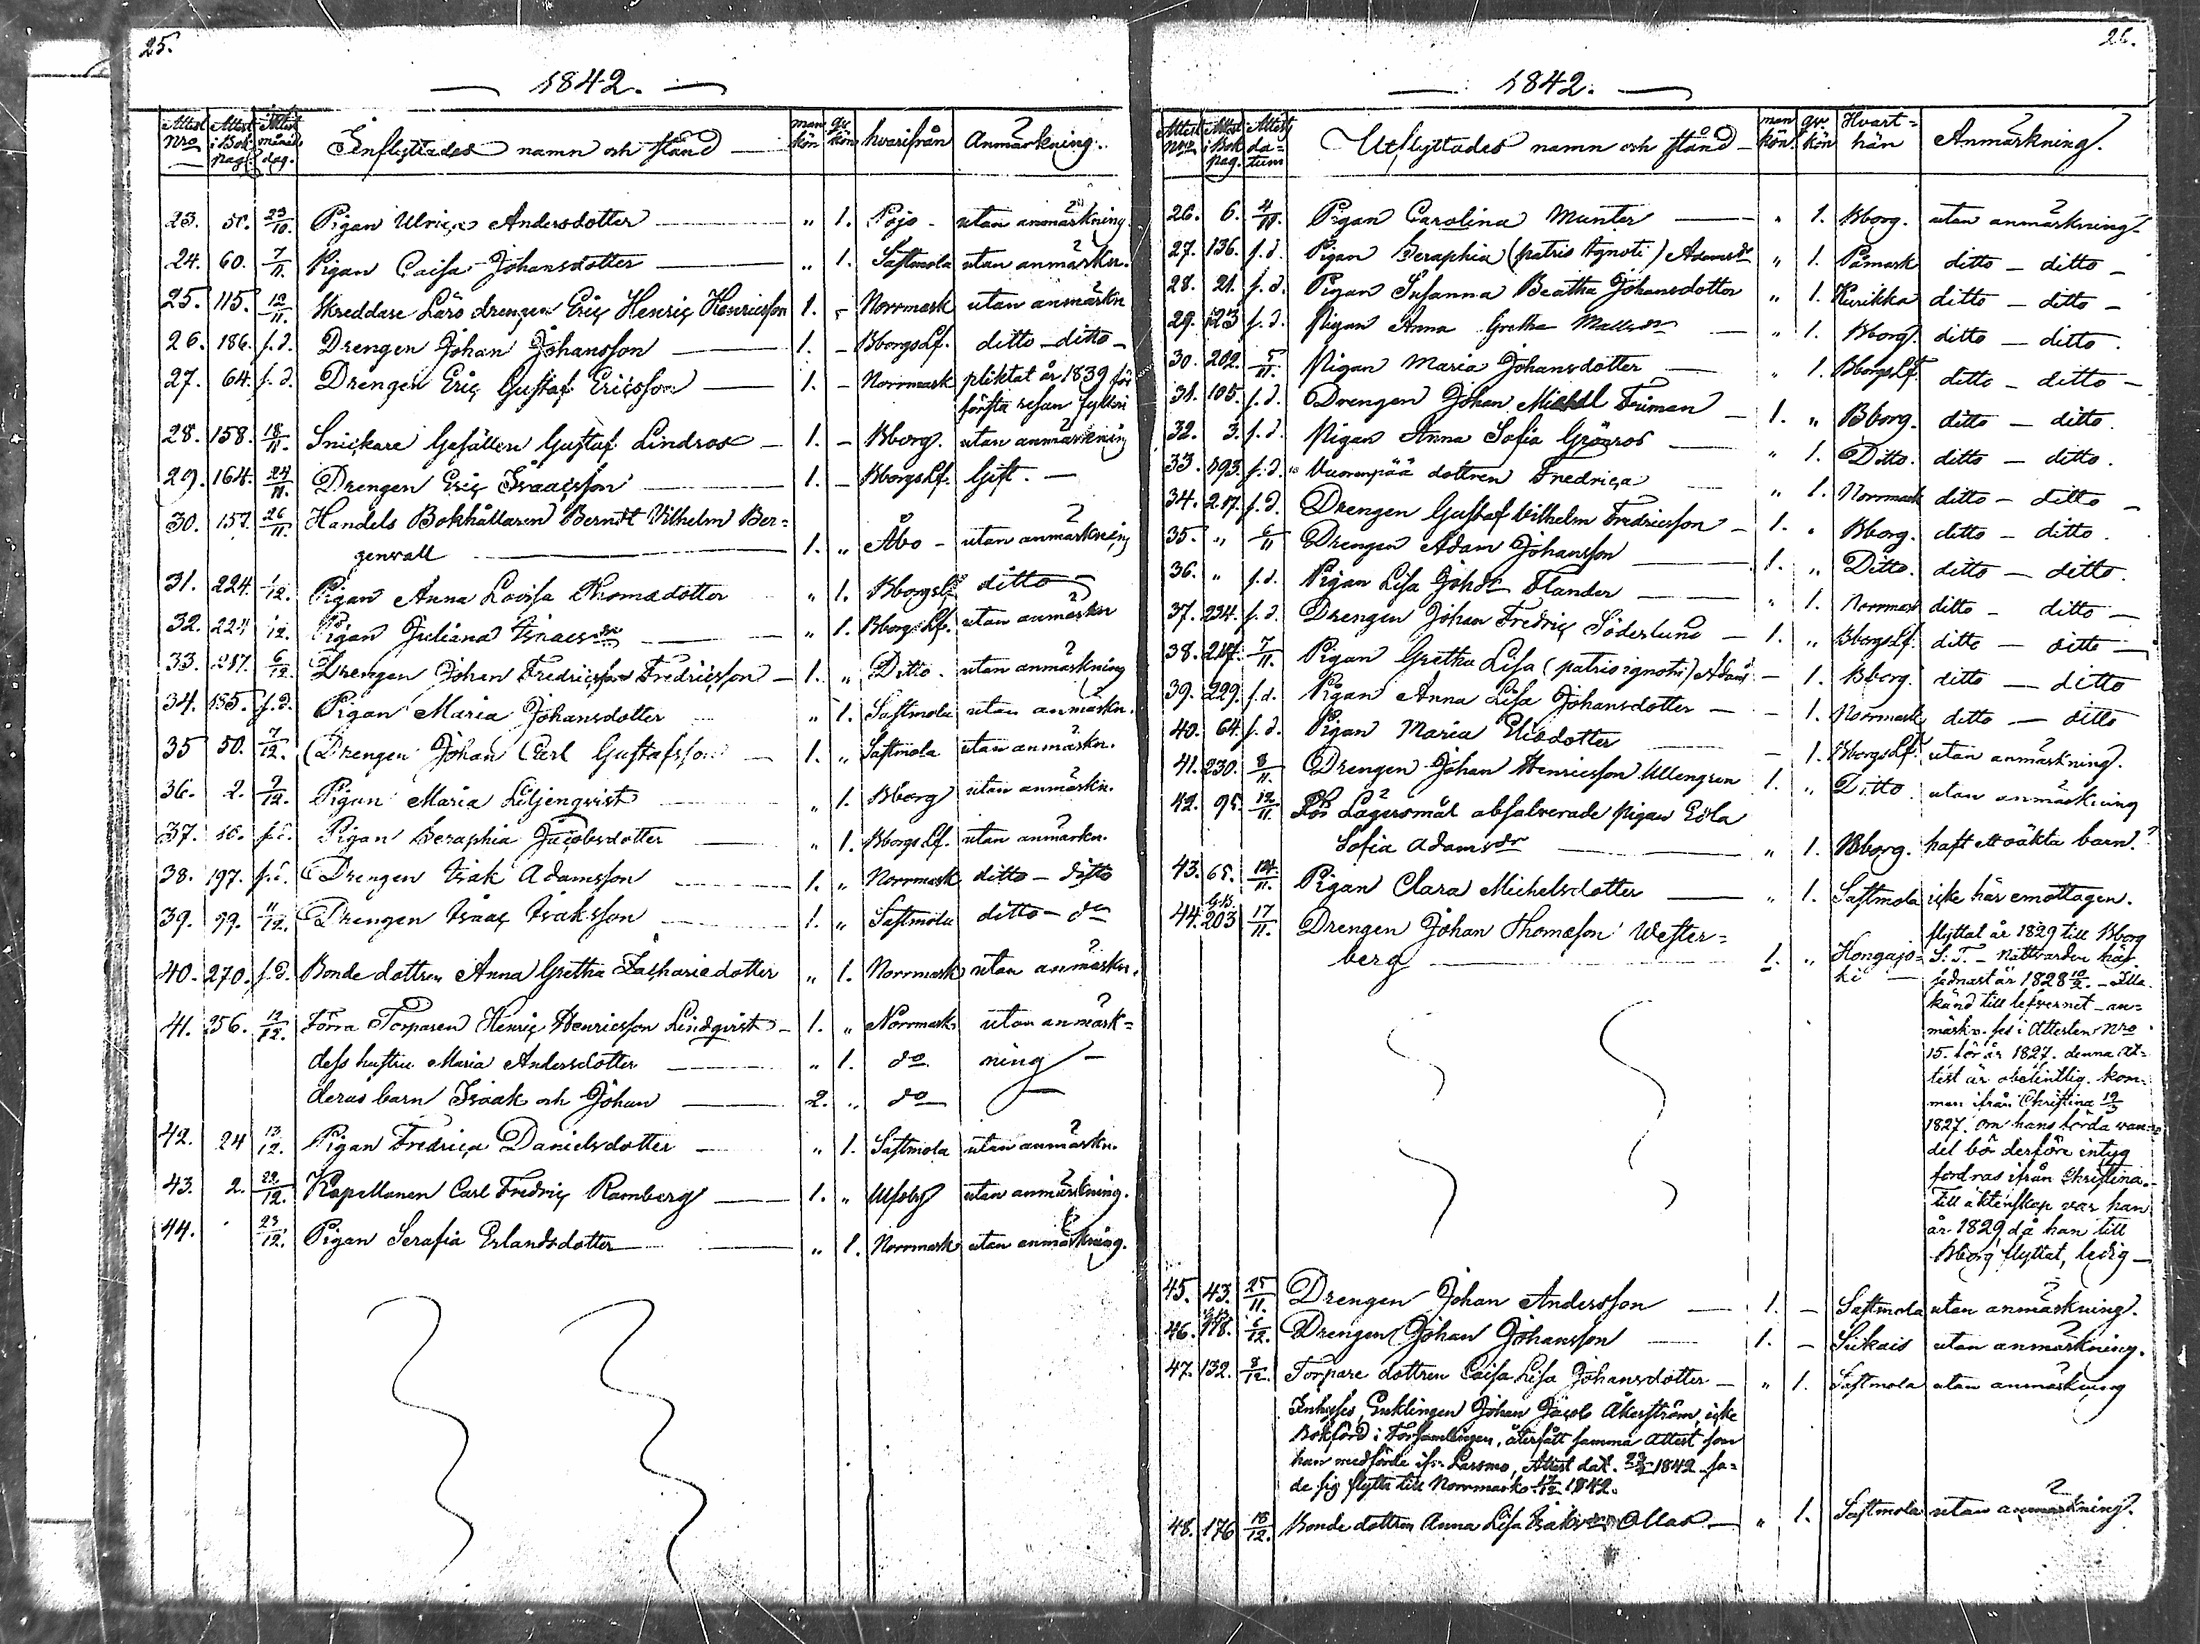 25.
1842.
Attest Nro | Attest i Bok pag. | Attest månad dag. | Inflyttades namn och stånd | man kön | qv. kön | hvarifrån | Anmärkning.
23. 50. 23/10. Pigan Ulrica Andersdotter — " 1. Pojo - utan anmärkning.
24. 60. 7/11. Pigan Caisa Johansdotter — " 1. Sastmola utan anmärkn.
25. 115. 12/11. Skreddare Läro drengen Eric Henric Henricsson 1. - Norrmark utan anmärkn
26. 186. s. d. Drengen Johan Johansson — 1. - BborgsLf. ditto - ditto -
27. 64. s. d. Drengen Eric Gustaf Ericsson — 1. - Norrmark pliktat år 1839 för
första resan fylleri
28. 158. 18/11. Snickare Gesällen Gustaf Lindros — 1. - Bborg. utan anmärkning
29. 164. 24/11. Drengen Eric Isaacsson — 1. - BborgsLf. Gift. —
30. 157. 26/11. Handels Bokhållaren Berndt Vilhelm Ber=
genvall — 1. " Åbo - utan anmärkning
31. 224. 1/12. Pigan Anna Lovisa Thomasdotter " 1. BborgsLf. ditto —
32. 224 1/12. Pigan Juliana Isaacsdr — " 1. BborgsLf. utan anmärkn
33. 287. 6/12. Drengen Johan Fredricsson Fredricsson — 1. " Ditto. utan anmärkning
34. 155. s. d. Pigan Maria Johansdotter " 1. Sastmola utan anmärkn.
35 50. 7/12. Drengen Johan Carl Gustafsson — 1. " Sastmola utan anmärkn.
36. 2. 9/12. Pigan Maria Liljenqvist — " 1. Bborg utan anmärkn.
37. 10. s. d. Pigan Seraphia Jacobsdotter — " 1. BborgsLf. utan anmärkn.
38. 197. s. d. Drengen Isak Adamsson — 1. " Norrmark ditto - ditto
39. 99. 11/12. Drengen Isaac Isaksson — 1. " Sastmola ditto - do
40. 270. s. d. Bonde dottren Anna Gretha Zachariedotter " 1. Norrmark utan anmärkn.
41. 256. 12/12. Förra Torparen Henric Henricsson Lindqvist — 1. " Norrmark utan anmärk=
dess hustru Maria Andersdotter — " 1. do ning —
deras barn Isaak och Johan — 2. " do —
42. 24 13/12. Pigan Fredrica Danielsdotter — " 1. Sastmola utan anmärkn.
43. 2. 22/12. Kapellanen Carl Fredric Ramberg — 1. " Ulfsby utan anmärkning.
44. 23/12. Pigan Serafia Erlandsdotter — " 1. Norrmark utan anmärkning.
26.
1842.
Attest Nro | Attest i Bok pag. | Attest da=tum | Utflyttades namn och stånd | man kön | qv. kön | Hvart=hän | Anmärkning.
26. 6. 4/11. Pigan Carolina Munter — " 1. Bborg. utan anmärkning.
27. 136. s. d. Pigan Seraphia (patris Ignoti) Adamsdr " 1. Påmark ditto — ditto —
28. 21. s. d. Pigan Susanna Beatha Johansdotter " 1. Kurikka ditto — ditto —
29. 123 s. d. Pigan Anna Gretha Mattsdr — " 1. Bborg. ditto — ditto.
30. 202. 5/11. Pigan Maria Johansdotter — " 1. BborgsLf. ditto — ditto —
31. 105. s. d. Drengen Johan Michel Friman — 1. " Bborg. ditto — ditto.
32. 3. s. d. Pigan Anna Sofia Grönros — " 1. Ditto. ditto — ditto.
33. 193. s. d. Vuorenpää dottren Fredrica " 1. Norrmark ditto — ditto
34. 217. s. d. Drengen Gustaf Vilhelm Fredricsson — 1. " Bborg. ditto — ditto.
35. " 6/11 Drengen Adam Johansson — 1. " Ditto. ditto — ditto.
36. " s. d. Pigan Lisa Johsdr Flander — " 1. Norrmark ditto — ditto —
37. 234. s. d. Drengen Johan Fredric Söderlund — 1. " BborgsLf. ditto — ditto —
38. 247. 7/11. Pigan Gretha Lisa (patris ignoti) Adamsdr — 1. Bborg. ditto — ditto
39. 229. s. d. Pigan Anna Lisa Johansdotter — - 1. Norrmark ditto — ditto
40. 64. s. d. Pigan Maria Eliædotter — 1. BborgsLf. utan anmärkning.
41. 230. 8/11. Drengen Johan Henricsson Ullengren 1. " Ditto. utan anmärkning
42. 95. 12/11. För Lägersmål absolverade pigan Eva
Sofia Adamsdr — " 1. Bborg. haft ett oäkta barn.
43. 65. 14/11. Pigan Clara Michelsdotter — " 1. Sastmola icke här emottagen.
44. 203 17/11. Drengen Johan Thomæson Wester=
berg — 1. " Hongajo=
ki
flyttat år 1829 till Bborg
S. T. - Nattvarden här
sednast år 1828 10/2. - Illa
känd till lefvernet - an=
märkn. ses i Attesten Nro
15. för år 1827. denna At=
test är obetintlig. kom=
men ifrån Christina 19/3
1827. om hans förda van=
del bör derföre intyg
fordras ifrån Christina.
Till äktenskap var han
år 1829 då han till
Bborg flyttat, ledig —
45. 43. 25/11. Drengen Johan Andersson — 1. — Sastmola utan anmärkning.
46. 178. 6/12. Drengen Johan Johansson — 1. — Siikais utan anmärkning.
47. 132. 8/12. Torpare dottren Caisa Lisa Johansdotter — " 1. Sastmola utan anmärkning
Inhyses Enklingen Johan Jacob Åkerström, icke
Bokförd i Församlingen, återfått samma Attest som
han medförde ifr. Larsmo, Attest dat. 1842 sa=
de sig flytta till Norrmark 1842.
48. 176 18/12. Bonde dottren Anna Lisa Isaksdr Ollas — " 1. Sastmola utan anmärkning.